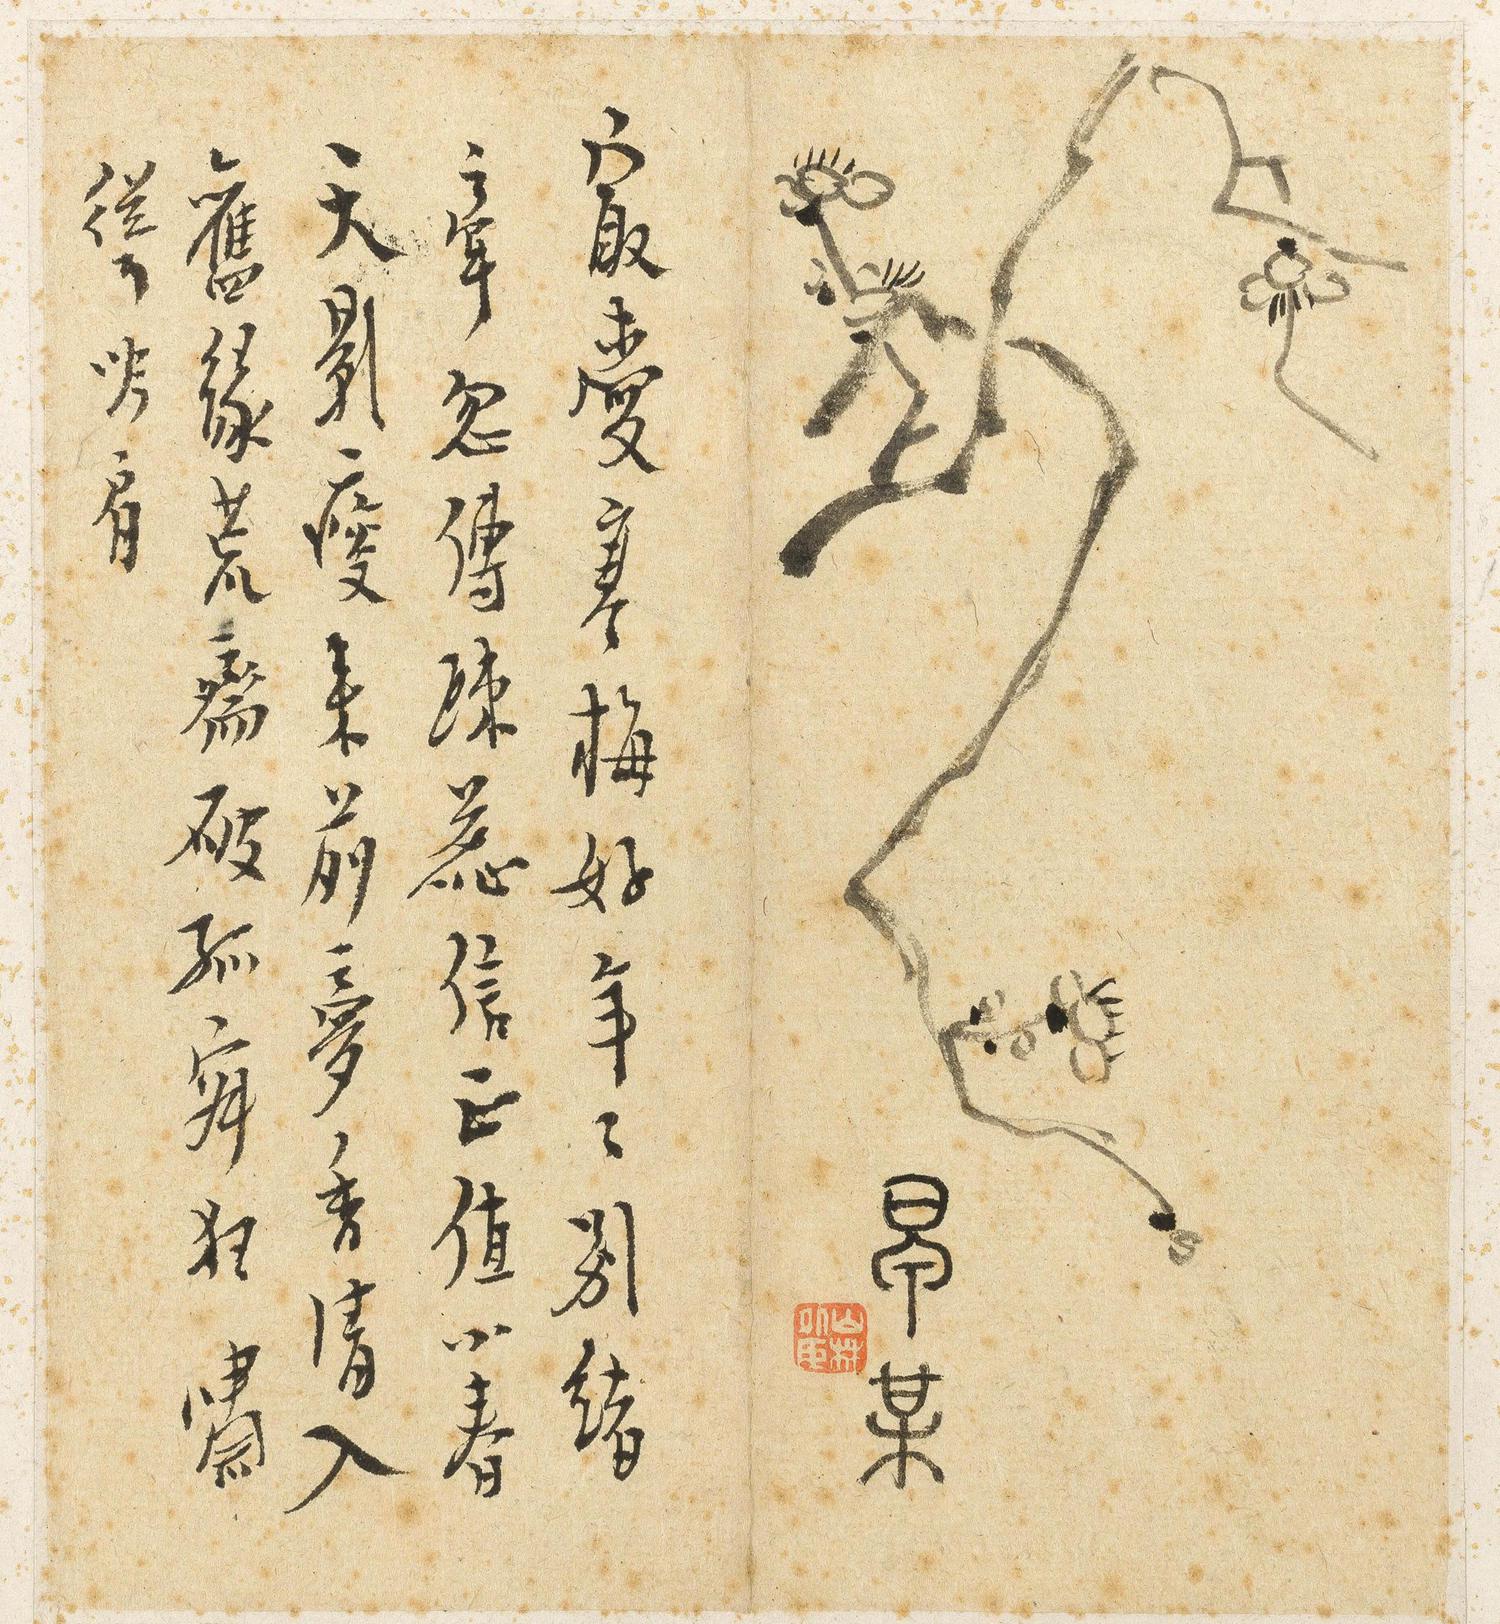 昂某
山林外臣
最愛寒梅好年〻別緒
牽忽傳踈蕊信正值小春
天影瘦來前夢香清入
舊緣荒齋破孤寂狂嘯
聳吟肩